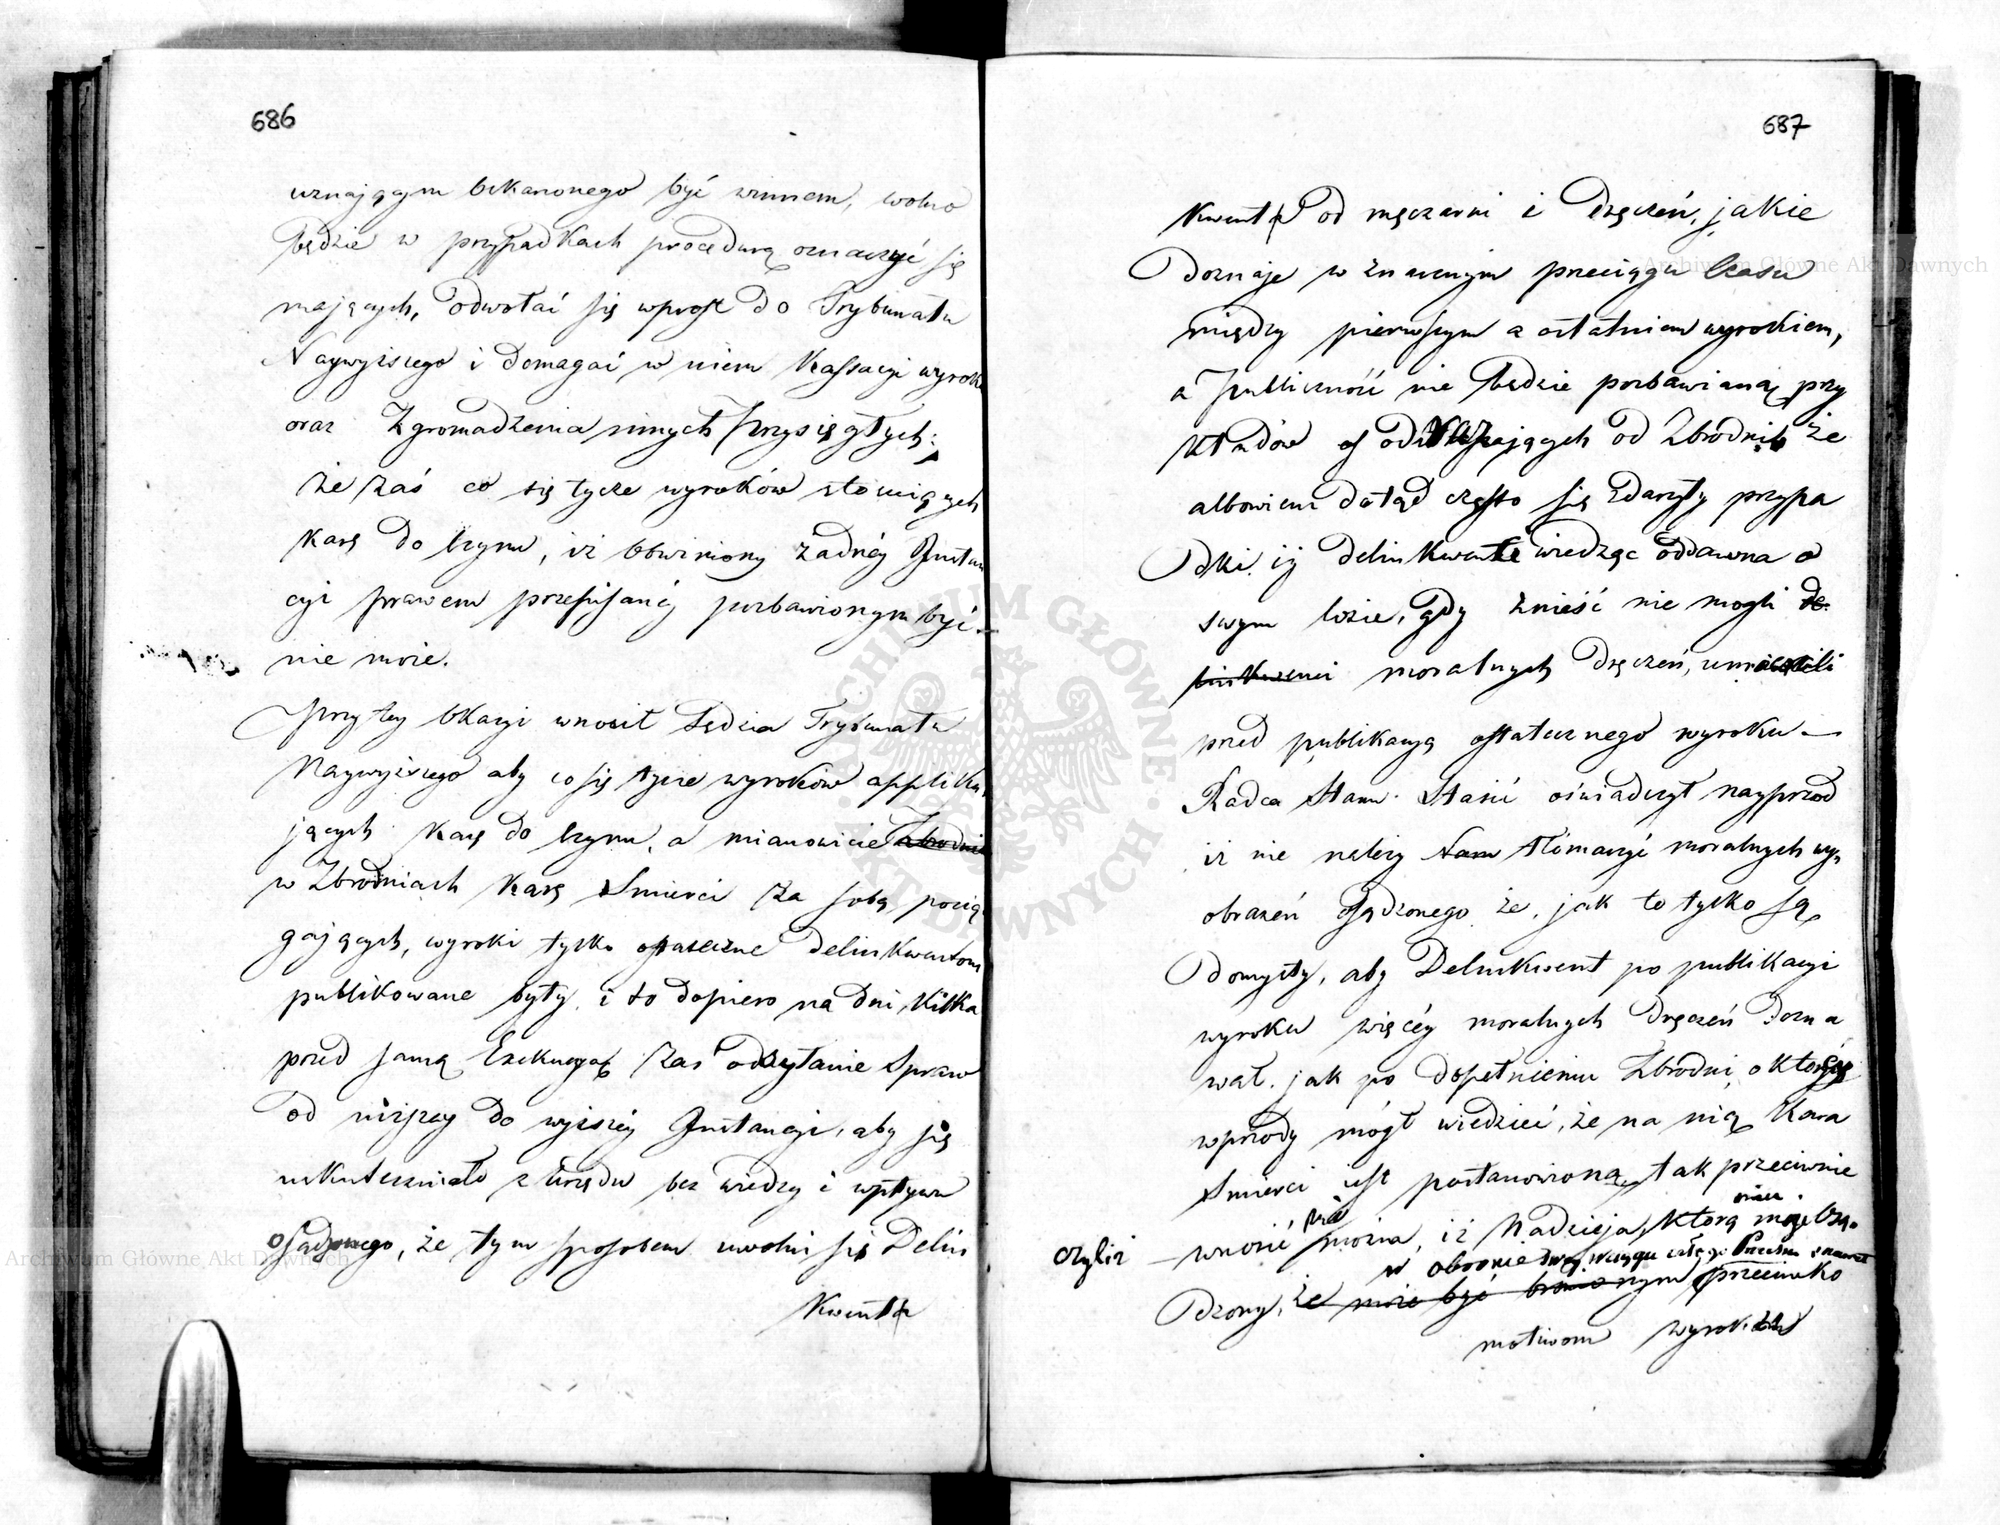 686
uznającym oskarżonego być winnem, wolno
będzie w przypadkach procedurą oznaczyć się
mających, odwołać się wprost do Trybunału
Naywyższego i domagać w niem Kassacyi wyroku
oraz Zgromadzenia innych Przysięgłych;
że zaś co się tycze wyroków stowiących
karę do czynu, iż obwiniony żadnéy Instan
cyi prawem przepisanéj pozbawionym być
nie może.
Przy tey okazyi wnosił Sędzia Trybunału
Naywyższego aby co się tycze wyroków appliku
jących karę do czynu, a mianowicie zbrodni
w Zbrodniach karę Smierci za sobą pocią
gających, wyroki tylko ostateczne delinkwentom
publikowane były, i to dopiero na dni kilka
przed samą Exekucyą, zas odsyłanie Spraw
od niższey do wyższéy Instancyi, aby się
uskuteczniało z Urzędu bez wiedzy i wpływu
osądzonego, że tym sposobem uwolni się Delin
kwent
687
kwent od męczarni i dręczeń, jakie
doznaje w znacznym przeciągu Czasu
między pierwszym a ostatniem wyrokiem,
a publiczność nie będzie pozbawianą przy
kładów odstraszających od Zbrodni, że
albowiem dotąd często się zdarzyły przypa
dki, iż delinkwenci wiedząc oddawna o
swym losie, gdy znieść nie mogli de
linkwenci moralnych dręczeń, umierali
przed publikacyą ostatecznego wyroku —
Radca Stanu Stasic oświadczył nayprzod
iż nie należy Nam tłómaczyć moralnych wy,
obrażeń osądzonego, że, jak to tylko są
domysły, aby Delinkwent po publikacyi
wyroku więcéy moralnych dręczeń dozna
wał, jak po dopełnieniu Zbrodni, o któréy
wprzody mógł wiedzieć, że na nią kara
Smierci jest postanowioną, tak przeciwnie
mieć
wnosić można, iż Nadzieja, którą może Osą,
czyliż
w obronie swej
dzony, że może być bronionym przeciwko
motivom wyroku